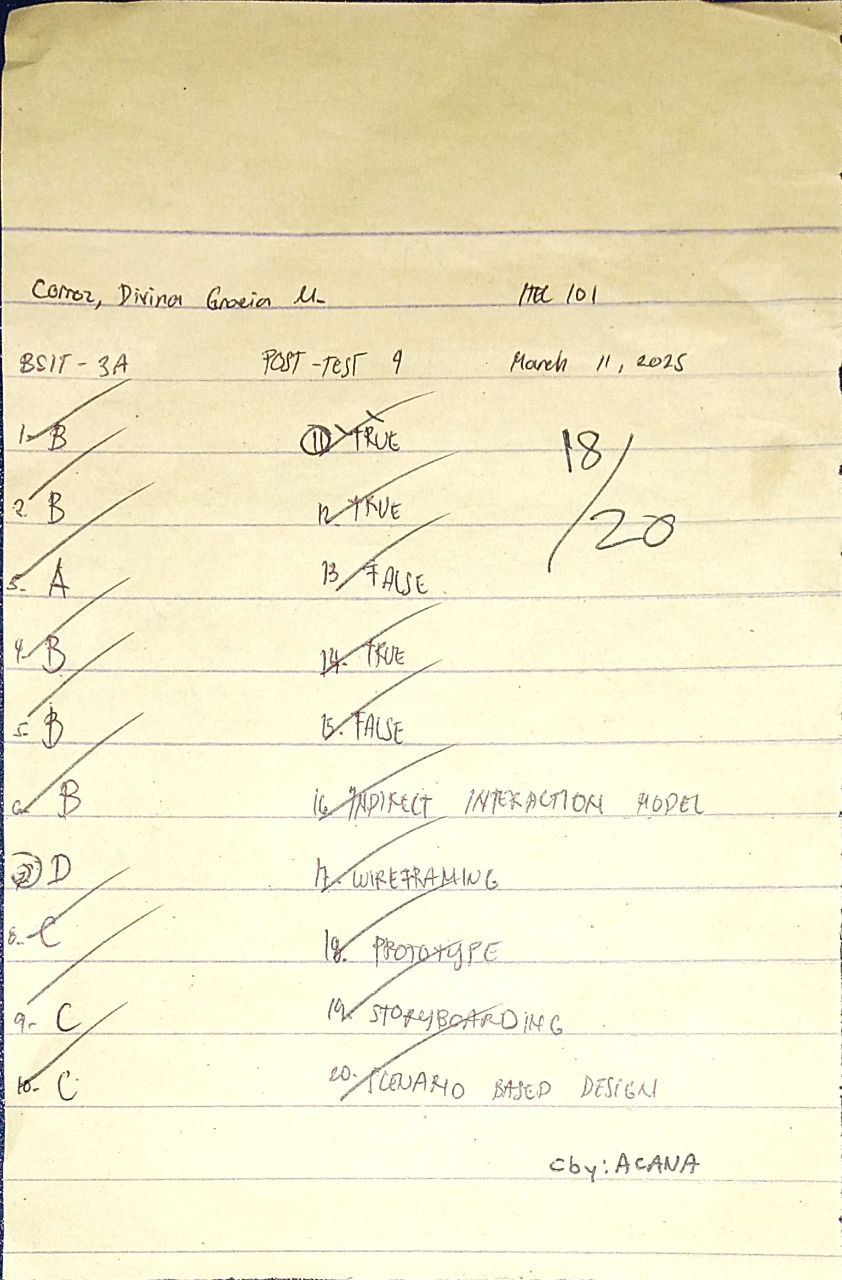 Corroz, Divina Gracia M. ITEC 101
BSIT - 3A POST-TEST 4 March 11, 2025
1. B
2. B
3. A
4. B
5. B
6. B
7. D
8. C
9. C
10. C
11 TRUE
12. TRUE
13 FALSE
14. TRUE
15. FALSE
16. INDIRECT INTERACTION MODEL
17. WIREFRAMING
18. PROTOTYPE
19. STORYBOARDING
20. SCENARIO BASED DESIGN
18/20
cby: ACANA